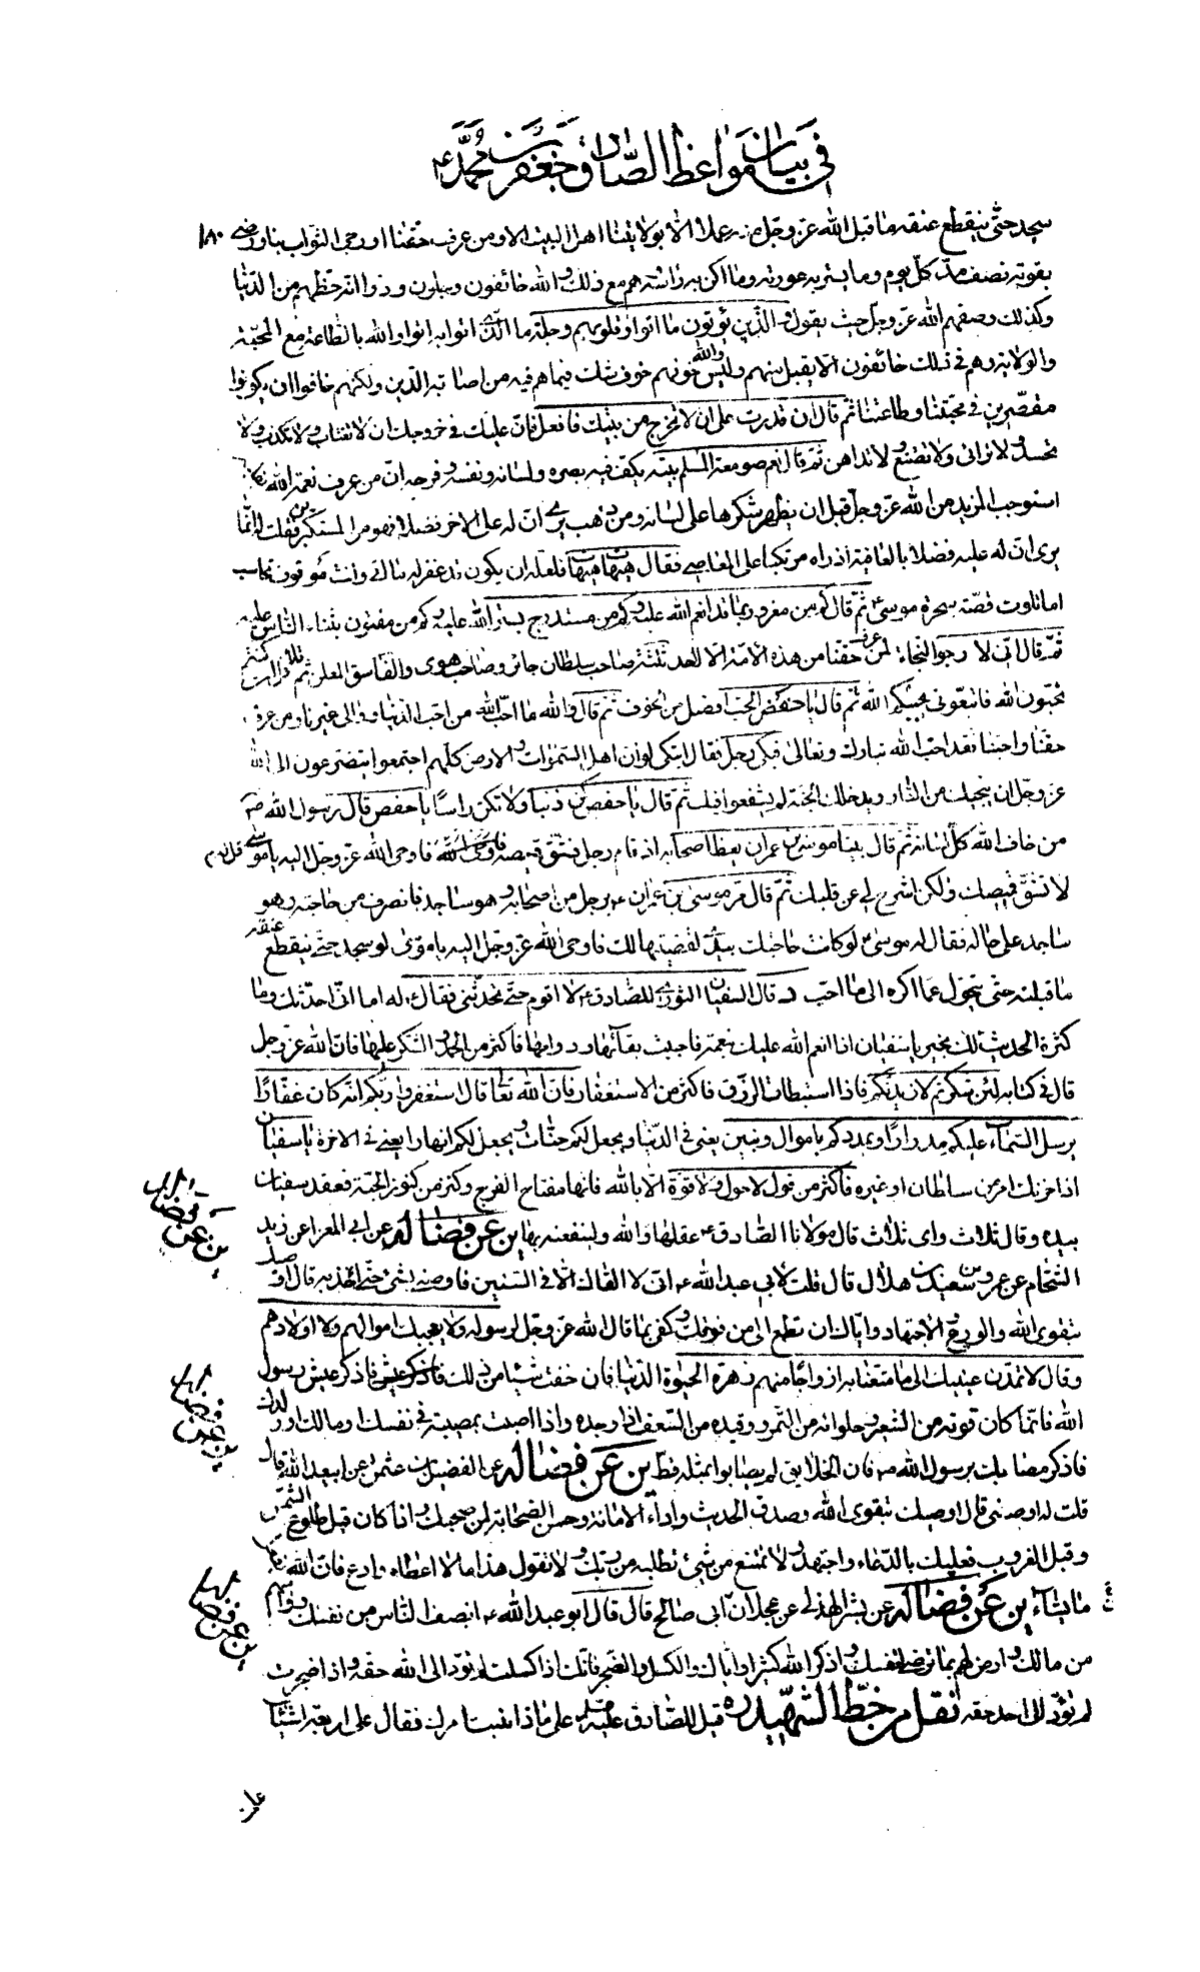 في بيان مواعظ الصادق جعفر بن محمد ع
سجد حتى ينقطع عنقه ما قبل الله عز وجل منه عملا الا بولايتنا اهل البيت الا ومن عرف حقنا او رجى الثواب بنا ورضى ١٨٠
بقوته نصف مد كل يوم وما يستر به عورته وما اكن به راسه هم مع ذلك والله خائفون وجلون ودوا انه حظهم من الدنيا
وكذلك وصفهم الله عز وجل حيث يقول والذين يؤتون ما اتوا وقلوبهم وجلة ما الذى اتوا به اتوا والله بالطاعة مع المحبة
والولاية وهم في ذلك خائفون الا يقبل منهم وليس والله خوفهم خوف شك فيما هم فيه من اصابة الدين ولكنهم خافوا ان يكونوا
مقصرين في محبتنا وطاعتنا ثم قال ان قدرت على ان لا تخرج من بيتك فافعل فان عليك في خروجك ان لا تغتاب ولا تكذب ولا
تحسد ولا ترائى ولا تصنع ولا تداهن ثم قال نعم صومعة المسلم بيته يكف فيه بصره ولسانه ونفسه وفرجه ان من عرف نعمة الله
استوجب المزيد من الله عز وجل قبل ان يظهر شكرها على لسانه ومن ذهب يرى ان له على الاخر فضلا فهو من المستكبرين فقلت له انما
يرى ان له عليه فضلا بالعافية اذ راه مرتكبا على المعاصي فقال هيهات هيهات فلعله ان يكون قد غفر له ما اتى وانت موقوف تحاسب
اما تلوت قصة سحرة موسى ع ثم قال كم من مغرور بما قد انعم الله عليه وكم من مستدرج بستر الله عليه وكم من مفتون بثناء الناس عليه
ثم قال انى لا رجوا النجاة لمن عرف حقنا من هذه الامة الا لاحد ثلثة صاحب سلطان جائر وصاحب هوى والفاسق المعلن ثم تلا قل ان كنتم
تحبون الله فاتبعونى يحببكم الله ثم قال يا حفص الحب افضل من الخوف ثم قال والله ما احب الله من احب الدنيا ووالى غيرنا ومن عرف
حقنا واحبنا فقد احب الله تبارك وتعالى فبكى رجل فقال اتبكى لو ان اهل السموات والارض كلهم اجتمعوا يتضرعون الى الله
عز وجل ان ينجيك من النار ويدخلك الجنة لم يشفعوا فيك ثم قال يا حفص كن ذنبا ولا تكن راسا يا حفص قال رسول الله ص
من خاف الله كل لسانه ثم قال بينا موسى بن عمران يعظ اصحابه اذ قام رجل فشق قميصه فاوحى الله عز وجل اليه يا موسى قل له
لا تشق قميصك ولكن اشرح لى عن قلبك ثم قال مر موسى بن عمران ع برجل من اصحابه وهو ساجد فانصرف من حاجته وهو
ساجد على حاله فقال له موسى ع لو كانت حاجتك بيدى لقضيتها لك فاوحى الله عز وجل اليه يا موسى لو سجد حتى ينقطع عنقه
ما قبلته حتى يتحول عما اكره الى ما احب قال السفيان الثورى للصادق ع لا اقوم حتى تحدثنى فقال ع له اما انى احدثك وما
كثرة الحديث لك بخير يا سفيان اذا انعم الله عليك بنعمة فاحببت بقائها ودوامها فاكثر من الحمد والشكر عليها فان الله عز وجل
قال في كتابه لئن شكرتم لازيدنكم فاذا استبطات الرزق فاكثر من الاستغفار فان الله تعا قال استغفروا ربكم انه كان غفارا
يرسل السماء عليكم مدرارا ويمددكم باموال وبنين يعنى في الدنيا ويجعل لكم جنات ويجعل لكم انهارا يعنى في الاخرة يا سفيان
اذا حزنك امر من سلطان او غيره فاكثر من قول لا حول ولا قوة الا بالله فانها مفتاح الفرج وكنز من كنوز الجنة فعقد سفيان
بيده وقال ثلاث واى ثلاث قال مولانا الصادق ع عقلها والله ولينفعنه بها ين عن فضاله عن ابى المغرا عن زيد
الشحام عن عمرو بن سعيد بن هلال قال قلت لابى عبد الله ع انى لا القاك الا في السنين فاوصنى بشئ حتى اخذ به قال اوصيك
بتقوى الله والورع والاجتهاد واياك ان تطمع الى من فوقك وكفى بما قال الله عز وجل لرسوله ولا يعجبك اموالهم ولا اولادهم
وقال لا تمدن عينيك الى ما متعنا به ازواجا منهم زهرة الحيوة الدنيا فان خفت شيئا من ذلك فاذكر عيش رسول
الله فانما كان قوته من الشعير وحلواه من التمر ووقيده من السعف اذا وجده واذا اصبت بمصيبة في نفسك او مالك او ولدك
فاذكر مصابك برسول الله ص فان الخلايق لم يصابوا بمثله قط ين عن فضاله عن الفضيل بن عثمن عن ابيعبد الله ع قال
قلت له اوصنى قال اوصيك بتقوى الله وصدق الحديث واداء الامانة وحسن الصحابة لمن صحبك واذا كان قبل طلوع الشمس
وقبل الغروب فعليك بالدعاء واجتهد ولا تمتنع من شئ تطلبه من ربك ولا تقول هذا ما لا اعطاه وادع فان الله يفعل
ما يشاء ين عن فضاله عن بشر الهذلى عن عجلان ابى صالح قال قال ابو عبد الله ع انصف الناس من نفسك وواسهم
من مالك وارض لهم بما ترضى لنفسك واذكر الله كثيرا واياك والكسل والضجر فانك اذا كسلت لم تؤد الى الله حقه واذا ضجرت
لم تؤد الى احد حقه نقل من خط الشهيد ره قيل للصادق عليه السلم على ماذا بنيت امرك فقال على اربعة اشياء
ين عن فضاله
ين عن فضاله
ين عن فضاله
علمت